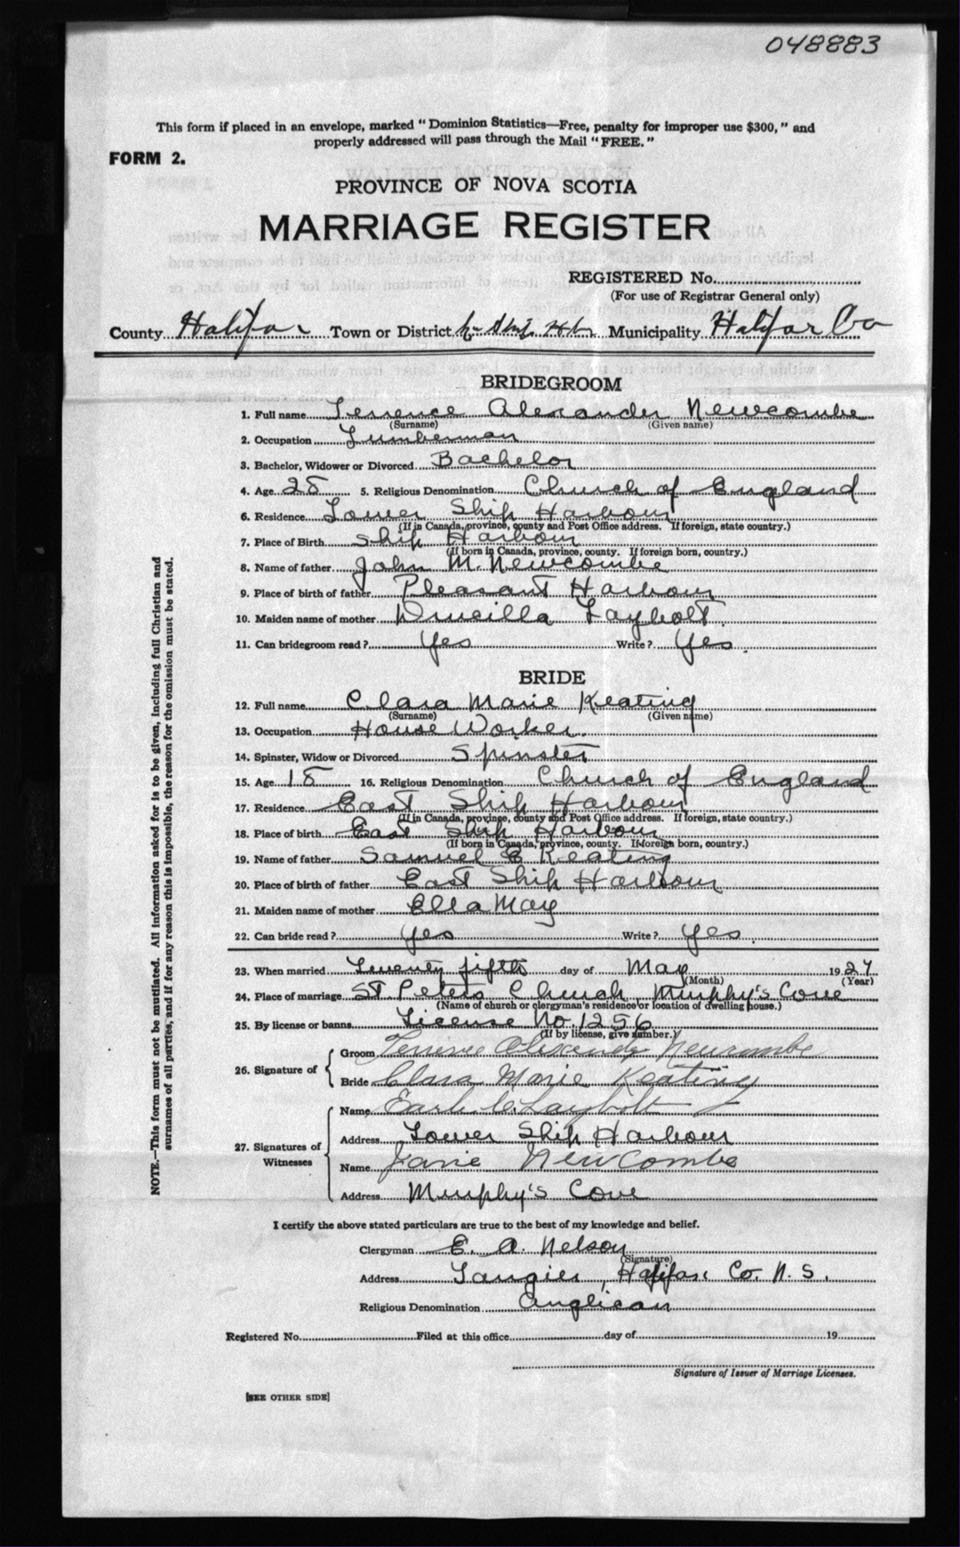 048883
This form if placed in an envelope, marked "Dominion Statistics—Free, penalty for improper use $300," and
properly addressed will pass through the Mail "FREE."
FORM 2.
PROVINCE OF NOVA SCOTIA
MARRIAGE REGISTER
REGISTERED No.
(For use of Registrar General only)
County Halifax Town or District Municipality Halifax Co
BRIDEGROOM
1. Full name Terrence Alexander Newcombe
(Surname) (Given name)
2. Occupation Lumberman
3. Bachelor, Widower or Divorced Bachelor
4. Age 28 5. Religious Denomination Church of England
6. Residence Lower Ship Harbour
(If in Canada, province, county and Post Office address. If foreign, state country.)
7. Place of Birth Ship Harbour
(If born in Canada, province, county. If foreign born, country.)
8. Name of father John M. Newcombe
9. Place of birth of father Pleasant Harbour
10. Maiden name of mother Drucilla Laybolt.
11. Can bridegroom read? Yes Write? Yes.
BRIDE
12. Full name Clara Marie Keating
(Surname) (Given name)
13. Occupation House Worker.
14. Spinster, Widow or Divorced Spinster
15. Age 18 16. Religious Denomination Church of England
17. Residence East Ship Harbour
(If in Canada, province, county and Post Office address. If foreign, state country.)
18. Place of birth East Ship Harbour
(If born in Canada, province, county. If foreign born, country.)
19. Name of father Samuel E Keating
20. Place of birth of father East Ship Harbour
21. Maiden name of mother Ella May
22. Can bride read? Yes Write? Yes.
23. When married Twenty fifth day of May 1927
(Month) (Year)
24. Place of marriage St. Peters Church, Murphy's Cove
(Name of church or clergyman's residence or location of dwelling house.)
25. By license or banns License No. 1256
(If by license, give number.)
26. Signature of
Groom Newcombe
Bride Clara Marie Keating
27. Signatures of Witnesses
Name Earl C. Laybolt
Address Lower Ship Harbour
Name Janie Newcombe
Address Murphy's Cove
I certify the above stated particulars are true to the best of my knowledge and belief.
Clergyman E. A. Nelson
(Signature)
Address Tangier, Halifax Co. N.S.
Religious Denomination Anglican
Registered No. Filed at this office day of 19
Signature of Issuer of Marriage Licenses.
[SEE OTHER SIDE]
NOTE.—This form must not be mutilated. All information asked for is to be given, including full Christian and
surnames of all parties, and if for any reason this is impossible, the reason for the omission must be stated.